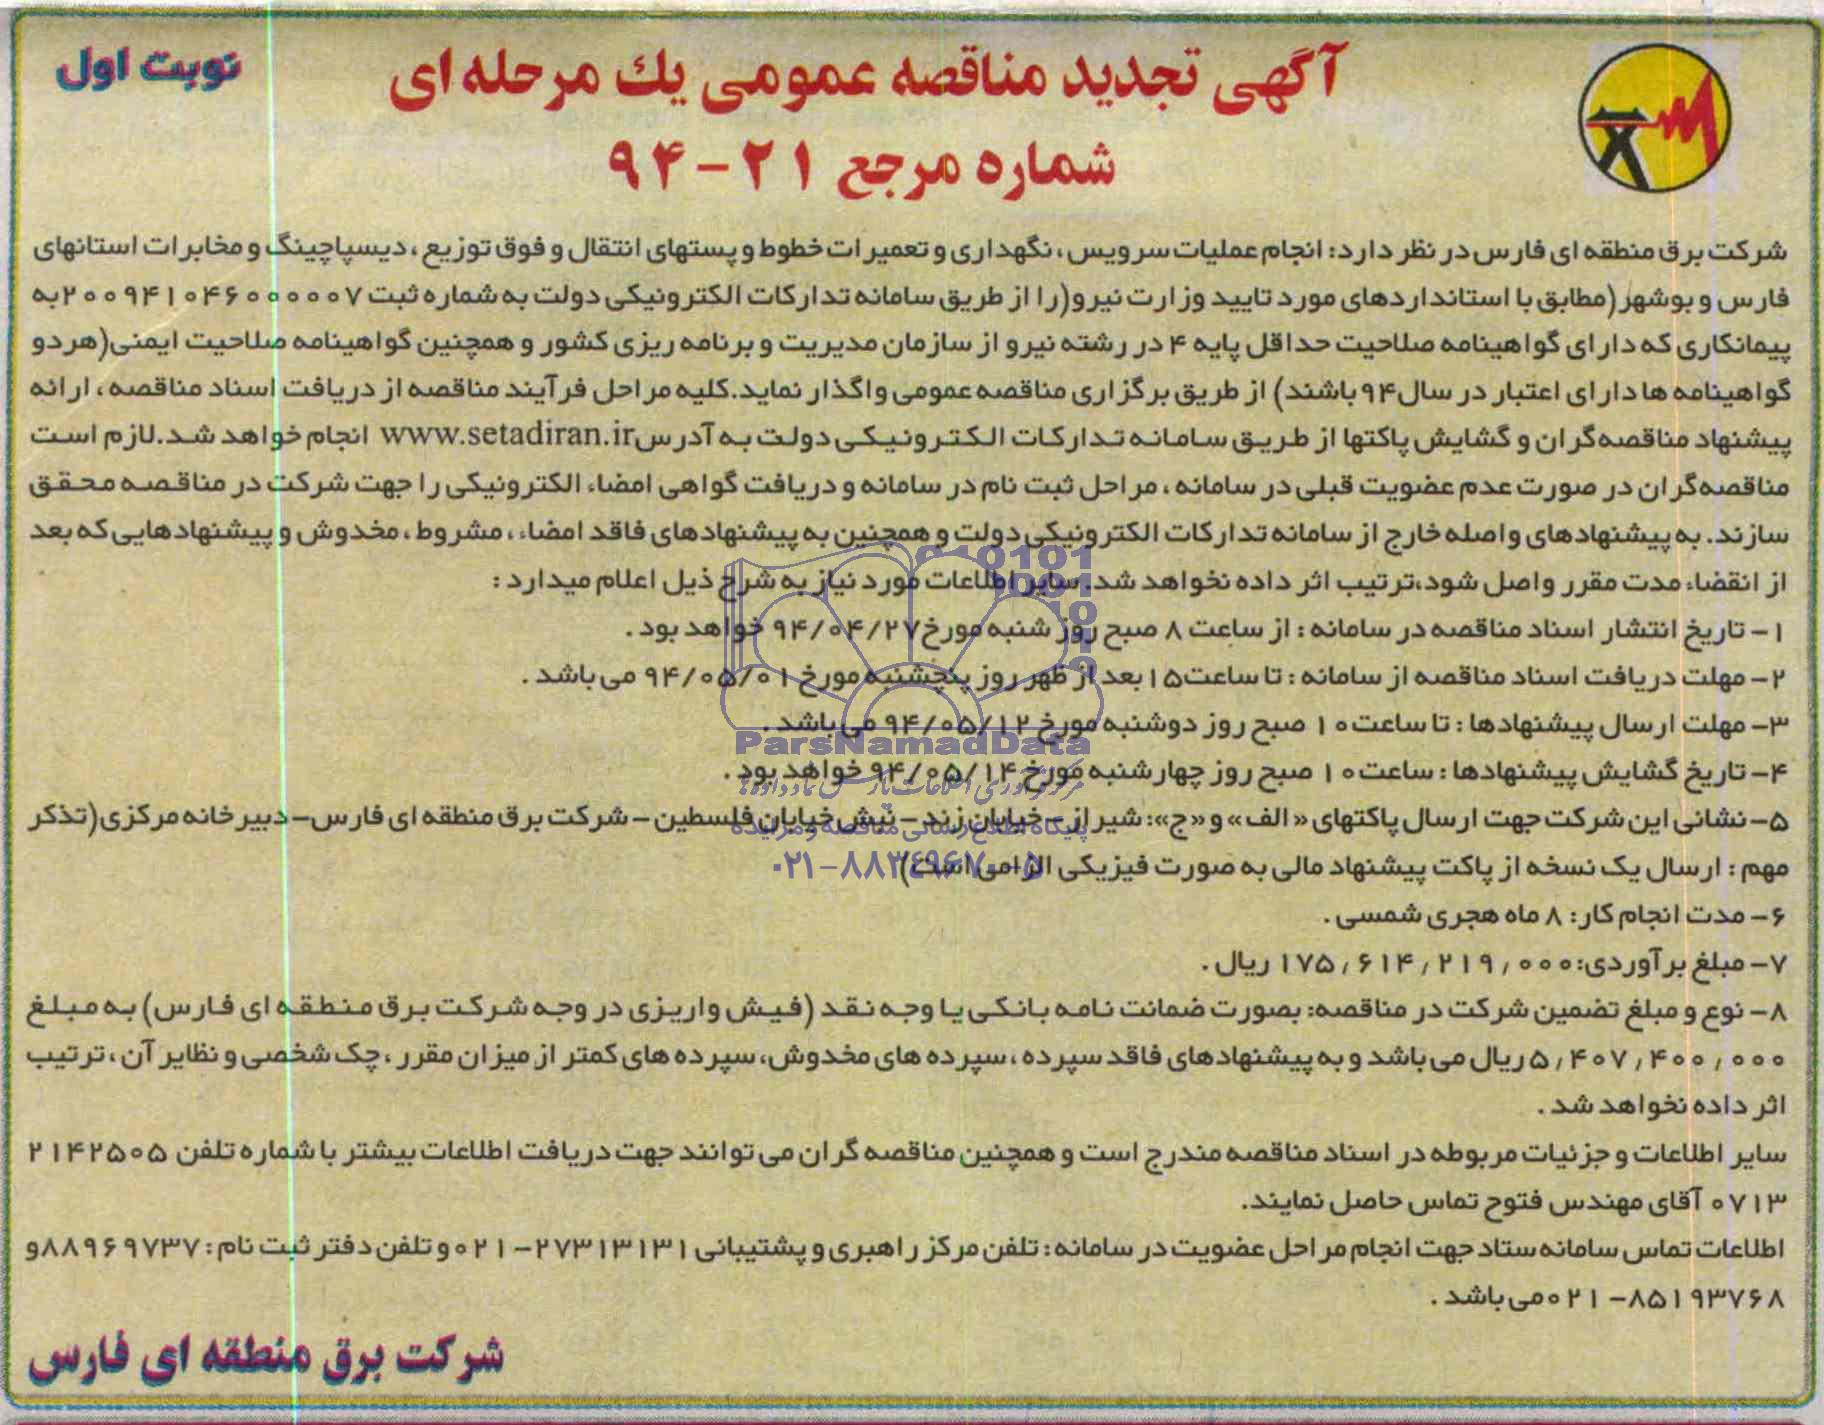 نوبت اول
آگهی تجدید مناقصه عمومی یك مرحله ای
شماره مرجع ۲۱-۹۴
شرکت برق منطقه ای فارس در نظر دارد: انجام عملیات سرویس، نگهداری و تعمیرات خطوط و پستهای انتقال و فوق توزیع، دیسپاچینگ و مخابرات استانهای
فارس و بوشهر(مطابق با استانداردهای مورد تایید وزارت نیرو(را از طریق سامانه تدارکات الکترونیکی دولت به شماره ثبت ۲۰۰۹۴۱۰۴۶۰۰۰۰۰۷به
پیمانکاری که دارای گواهینامه صلاحیت حداقل پایه ۴ در رشته نیرو از سازمان مدیریت و برنامه ریزی کشور و همچنین گواهینامه صلاحیت ایمنی(هردو
گواهینامه ها دارای اعتبار در سال۹۴باشند) از طریق برگزاری مناقصه عمومی واگذار نماید.کلیه مراحل فرآیند مناقصه از دریافت اسناد مناقصه، ارائه
پیشنهاد مناقصه‌گران و گشایش پاکتها از طریق سامانه تدارکات الکترونیکی دولت به آدرسwww.setadiran.ir انجام خواهد شد.لازم است
مناقصه‌گران در صورت عدم عضویت قبلی در سامانه، مراحل ثبت نام در سامانه و دریافت گواهی امضاء الکترونیکی را جهت شرکت در مناقصه محقق
سازند. به پیشنهادهای واصله خارج از سامانه تدارکات الکترونیکی دولت و همچنین به پیشنهادهای فاقد امضاء، مشروط، مخدوش و پیشنهادهایی که بعد
از انقضاء مدت مقرر واصل شود،ترتیب اثر داده نخواهد شد. سایر اطلاعات مورد نیاز به شرح ذیل اعلام میدارد :
۱- تاریخ انتشار اسناد مناقصه در سامانه : از ساعت ۸ صبح روز شنبه مورخ۹۴/۰۴/۲۷ خواهد بود .
۲- مهلت دریافت اسناد مناقصه از سامانه : تا ساعت۱۵ بعد از ظهر روز پنجشنبه مورخ ۹۴/۰۵/۰۱ می باشد .
۳- مهلت ارسال پیشنهادها : تا ساعت۱۰ صبح روز دوشنبه مورخ ۹۴/۰۵/۱۲ می باشد .
ParsNamadData
۴- تاریخ گشایش پیشنهادها : ساعت۱۰ صبح روز چهارشنبه مورخ ۹۴/۰۵/۱۴ خواهد بود .
مرکز فرآوری اطلاعات پارس نماد داده‌ها
۵- نشانی این شرکت جهت ارسال پاکتهای «الف» و «ج»: شیراز- خیابان زند - نبش خیابان فلسطین - شرکت برق منطقه ای فارس- دبیرخانه مرکزی(تذکر
پایگاه اطلاع رسانی مناقصه و مزایده
مهم : ارسال یک نسخه از پاکت پیشنهاد مالی به صورت فیزیکی الزامی است)
۰۲۱-۸۸۳۴۹۶۷۰-۵
۶- مدت انجام کار: ۸ ماه هجری شمسی .
۷- مبلغ برآوردی:۱۷۵٫۶۱۴٫۲۱۹٫۰۰۰ ریال .
۸- نوع و مبلغ تضمین شرکت در مناقصه: بصورت ضمانت نامه بانکی یا وجه نقد (فیش واریزی در وجه شرکت برق منطقه ای فارس) به مبلغ
۵٫۴۰۷٫۴۰۰٫۰۰۰ریال می باشد و به پیشنهادهای فاقد سپرده، سپرده های مخدوش، سپرده های کمتر از میزان مقرر، چک شخصی و نظایر آن، ترتیب
اثر داده نخواهد شد .
سایر اطلاعات و جزئیات مربوطه در اسناد مناقصه مندرج است و همچنین مناقصه گران می توانند جهت دریافت اطلاعات بیشتر با شماره تلفن ۲۱۴۲۵۰۵
۰۷۱۳ آقای مهندس فتوح تماس حاصل نمایند.
اطلاعات تماس سامانه ستاد جهت انجام مراحل عضویت در سامانه : تلفن مرکز راهبری و پشتیبانی ۲۷۳۱۳۱۳۱-۰۲۱و تلفن دفتر ثبت نام: ۸۸۹۶۹۷۳۷و
۸۵۱۹۳۷۶۸-۰۲۱می باشد .
شرکت برق منطقه ای فارس